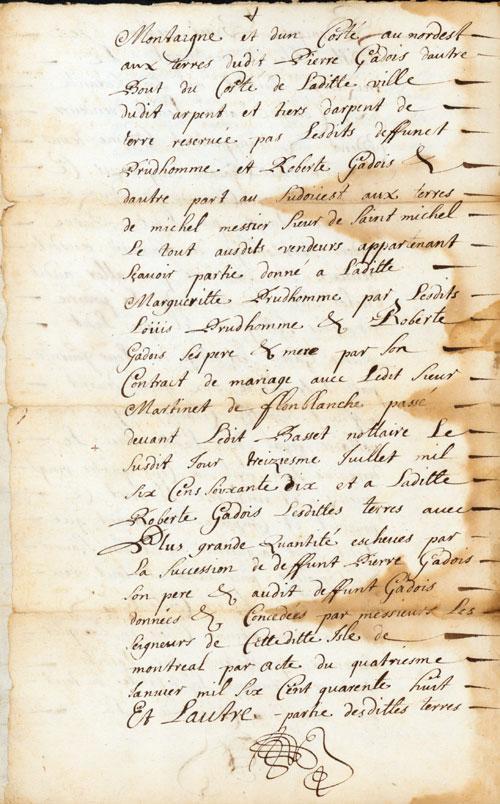 Montaigne et dun Costé au nordest
aux terres dudit Pierre Gadois dautre
Bout du Coste de Laditte ville
dudit arpent et tiers darpent de
terre reservée pas Lesdits deffunct
Prudhomme et Roberte Gadois &
dautre part au Sudoüest aux terres
de michel messier Sieur de Saint michel
Le tout ausdits vendeurs appartenant
Sçavoir partie donné a Laditte
Margueritte Prudhomme par Lesdits
Loüis Prudhomme & Roberte
Gadois Ses pere & mere par Son
Contract de mariage avec Ledit Sieur
Martinet de flonblanche passé
devant Ledit Basset nottaire Le
Susdit Jour treiziesme Juillet mil
Six Cens Soixante dix et a Laditte
Roberte Gadois Lesdittes terres avec
Plus grande quantité escheues par
La Succession de deffunt Pierre Gadois
Son pere & audit deffunt Gadois
données & Concedées par messieurs Les
Seigneurs de Cetteditte Isle de
montreal par acte du quatriesme
Janvier mil Six Cent quarente huit
Et Lautre partie desdittes terres